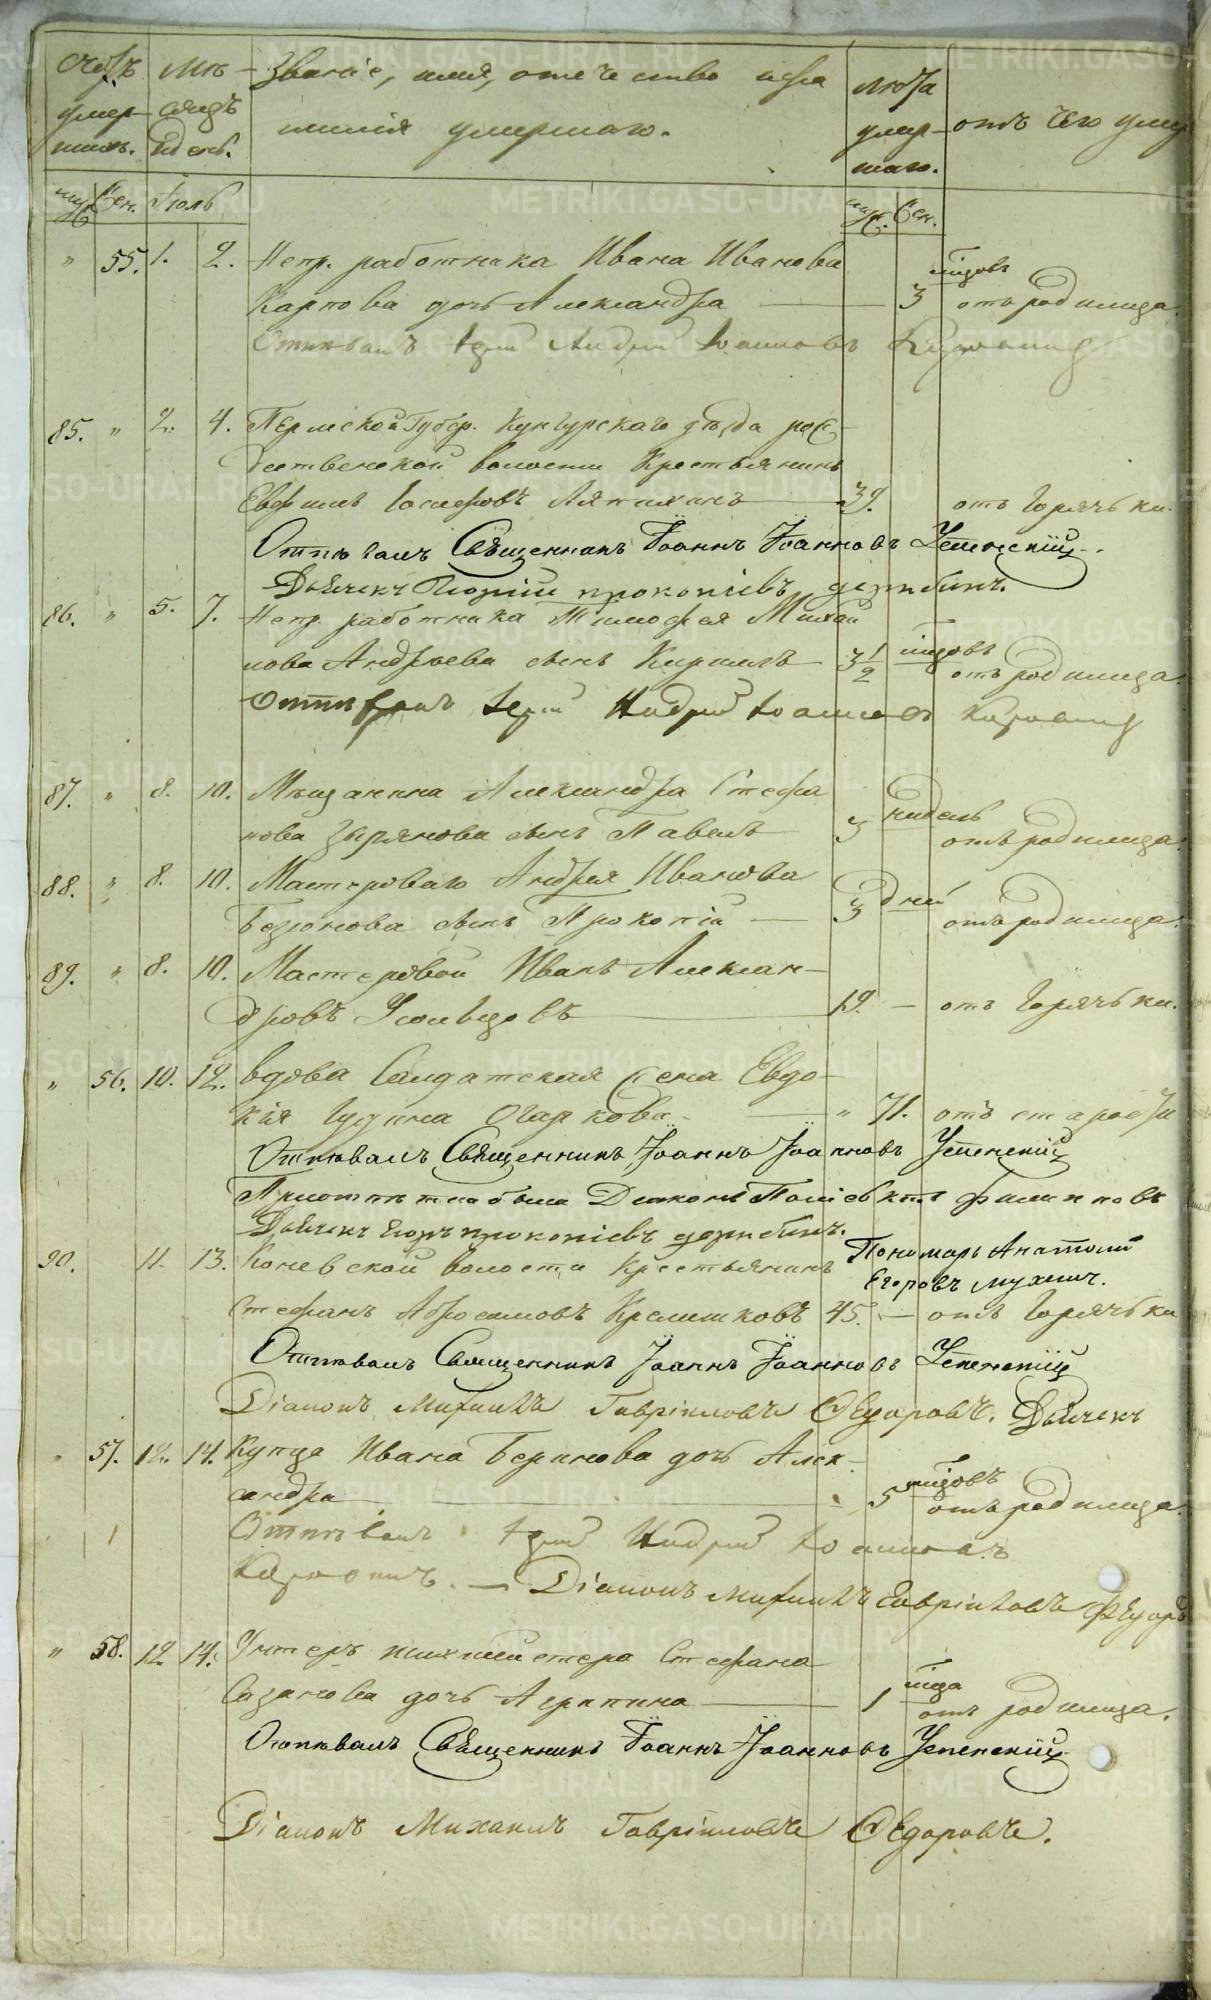 Счетъ умершихъ. Мѣсяцъ и день. Званіе, имя, отечество и фамилія умершаго. Лѣта умершаго. отъ чего умеръ
муж. жен. Іюль муж. жен.
" 55. 1. 2. Непр. работника Ивана Иванова
Карпова дочь Александра — 3 мѣсяцовъ отъ родимца.
Отпѣвалъ Іерей Андрей Іоанновъ
85. " 2. 4. Пермской Губер. Кунгурскаго уѣзда рож-
дественской волости Крестьянинъ
Ефимъ Іосифовъ — 39. отъ Горячьки.
Отпѣвалъ Священникъ Іоаннъ Іоанновъ Успенскій.
Дьячекъ Прокопіевъ дерябинъ.
86. " 5. 7. Непр. работника Тимофея Михай
лова Андреева сынъ Кирилъ — 3 1/2 мѣсяцовъ отъ родимца.
Отпѣвалъ Іерей Андрей Іоанновъ
87. " 8. 10. Мѣщанина Александра Стефа
нова Зырянова сынъ Павелъ — 3 недель отъ родимца.
88. " 8. 10. Мастероваго Андрея Иванова
сынъ Прокопій — 3 дней отъ родимца.
89. " 8. 10. Мастеровой Иванъ Алексан-
дровъ Усольцовъ — 19. — отъ Горячьки.
" 56. 10. 12. вдова Салдатская жена Евдо-
кія Огаркова — " 71. отъ старости
Отпѣвалъ Священникъ Іоаннъ Іоанновъ Успенскій
При отпѣтіи былъ Діаконъ Поліевктъ Филиповъ
Дьячекъ Егоръ прокопіевъ дерябинъ. Пономарь Анатолій
Егоровъ мухинъ.
90. 11. 13. Коневской волости Крестьянинъ
Стефанъ Абросимовъ 45. — отъ Горячьки
Отпѣвалъ Священникъ Іоаннъ Іоанновъ Успенскій
Діаконъ Михаилъ Гавріиловъ Ѳедоровъ. Дьячекъ
" 57. 12. 14. Купца Ивана Беринова дочь Алек-
сандра — 5 мѣсяцовъ отъ родимца.
Отпѣвалъ Іерей Андрей Іоанновъ
— Діаконъ Михаилъ Гавріиловъ Ѳедоровъ
" 58. 12 14. Унтеръ шихмейстера Стефана
Сазанова дочь Агрипина — 1 мѣсяца отъ родимца.
Отпѣвалъ Священникъ Іоаннъ Іоанновъ Успенскій
Діаконъ Михаилъ Гавріиловъ Ѳедоровъ.
METRIKI.GASO-URAL.RU